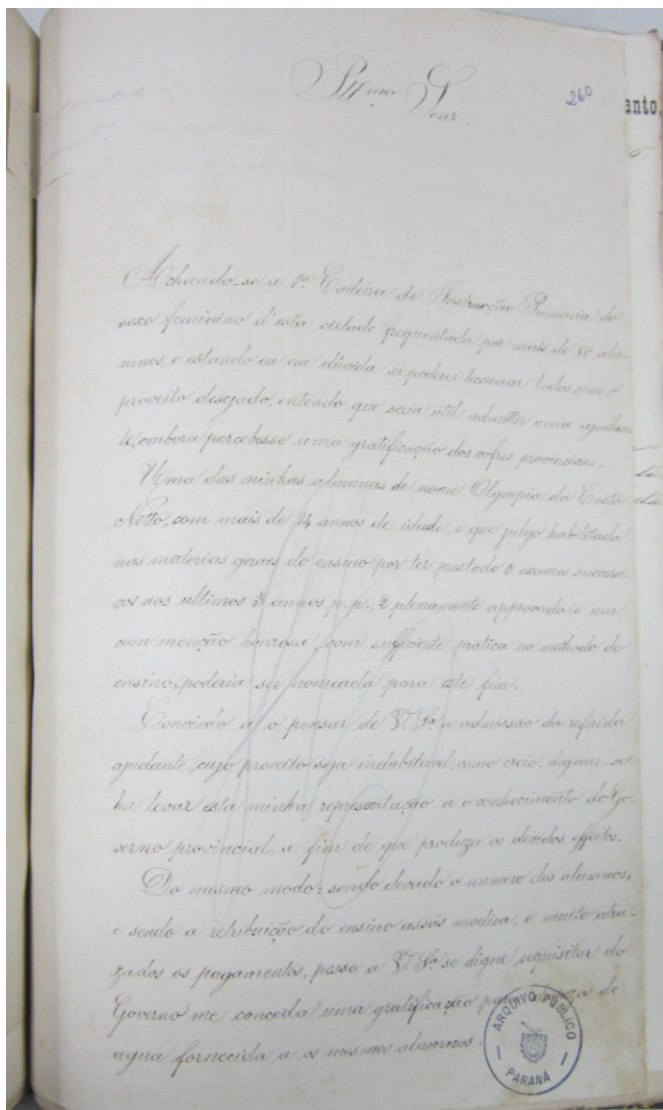 Illmo Senr.
260
anto,
Achando-se a 1ª Cadeira de Instrucção Primaria do
sexo feminino d'esta cidade frequentada por mais de 80 alu-
mnos, e estando eu em dúvida si poderei leccionar todos com o
proveito desejado, entendo que seria util admittir uma ajudan-
te, embora percebesse uma gratificação dos cofres provinciaes.
Uma das minhas alumnas de nome Olympia da Costa
Netto, com mais de 14 annos de idade, e que julgo habilitada
nas materias geraes do ensino por ter prestado 3 exames successi-
vos nos ultimos 3 annos p. p., 2 plenamente approvada e um
com menção honrosa, com sufficiente pratica no methodo de
ensino, poderia ser nomeada para este fim.
Convindo a o pensar de V. Sª a admissão da referida
ajudante, cujo proveito seja indubitavel, como creio, dignar-se-
ha levar esta minha representação a o conhecimento do Go-
verno provincial, a fim de que produza os devidos effeitos.
Do mesmo modo: sendo elevado o numero dos alumnos,
e sendo a retribuição do ensino assás modica, e muito atra-
zados os pagamentos, passo a V. Sª se digne requisitar do
Governo me conceda uma gratificação para de
agua fornecida a os mesmos alumnos.
ARQUIVO PÚBLICO
PARANÁ